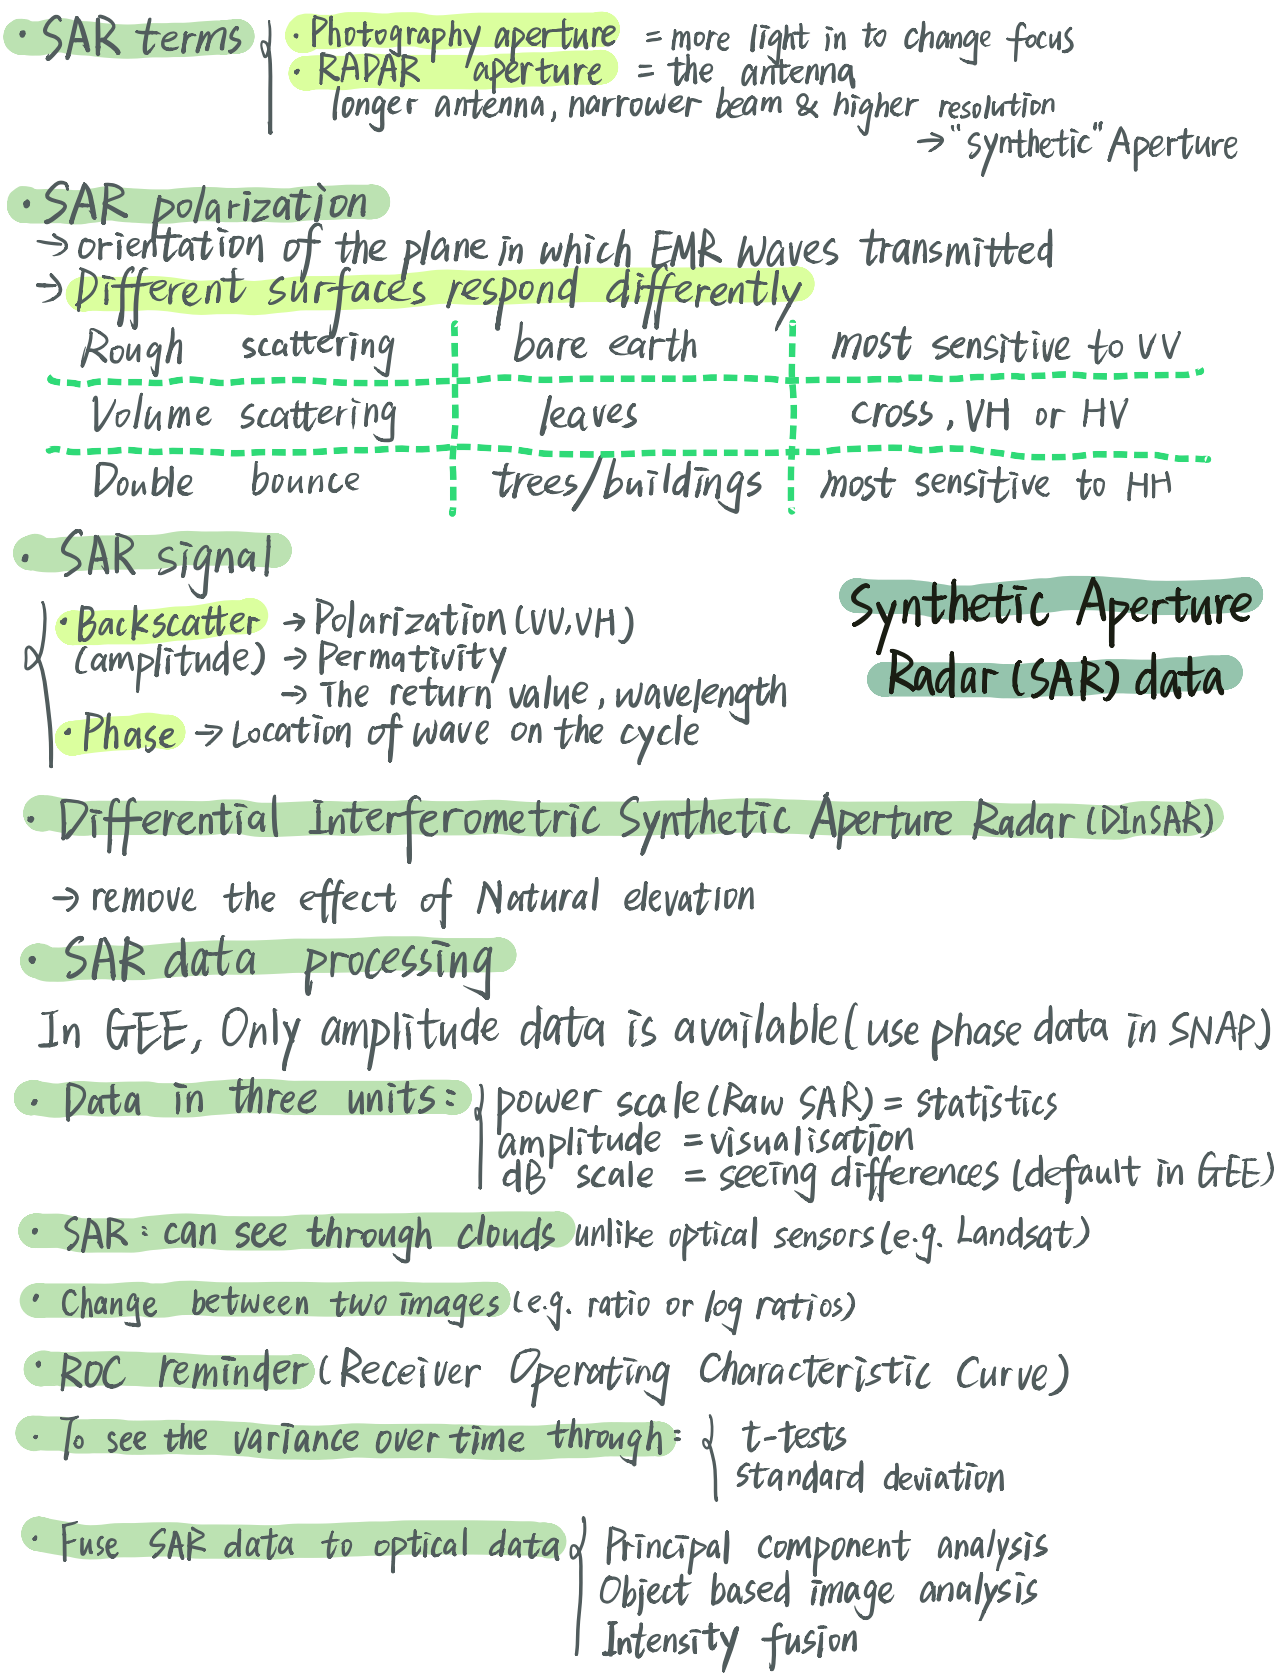 · SAR terms
· Photography aperture = more light in to change focus
· RADAR aperture = the antenna
longer antenna, narrower beam & higher resolution
→ "synthetic" Aperture
· SAR polarization
→ orientation of the plane in which EMR waves transmitted
→ Different surfaces respond differently
Rough scattering bare earth most sensitive to VV
Volume scattering leaves cross, VH or HV
Double bounce trees/buildings most sensitive to HH
· SAR signal
· Backscatter → Polarization (VV, VH)
(amplitude) → Permativity
→ The return value, wavelength
· Phase → Location of wave on the cycle
Synthetic Aperture
Radar (SAR) data
· Differential Interferometric Synthetic Aperture Radar (DInSAR)
→ remove the effect of Natural elevation
· SAR data processing
In GEE, Only amplitude data is available (use phase data in SNAP)
· Data in three units: power scale (Raw SAR) = statistics
amplitude = visualisation
dB scale = seeing differences (default in GEE)
· SAR: can see through clouds unlike optical sensors (e.g. Landsat)
· Change between two images (e.g. ratio or log ratios)
· ROC reminder (Receiver Operating Characteristic Curve)
· To see the variance over time through: t-tests
standard deviation
· Fuse SAR data to optical data Principal component analysis
Object based image analysis
Intensity fusion